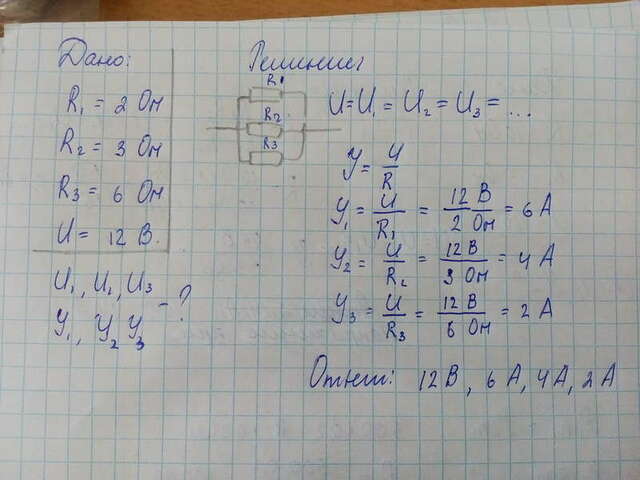 Дано:
R₁ = 2 Ом
R₂ = 3 Ом
R₃ = 6 Ом
U = 12 В
U₁, U₂, U₃
У₁, У₂ У₃ - ?
Решение
R1
R2
R3
U=U₁ = U₂ = U₃ = ...
У = U/R
У₁ = U/R₁ = 12 В/2 Ом = 6 А
У₂ = U/R₂ = 12 В/3 Ом = 4 А
У₃ = U/R₃ = 12 В/6 Ом = 2 А
Ответ: 12 В, 6 А, 4 А, 2 А